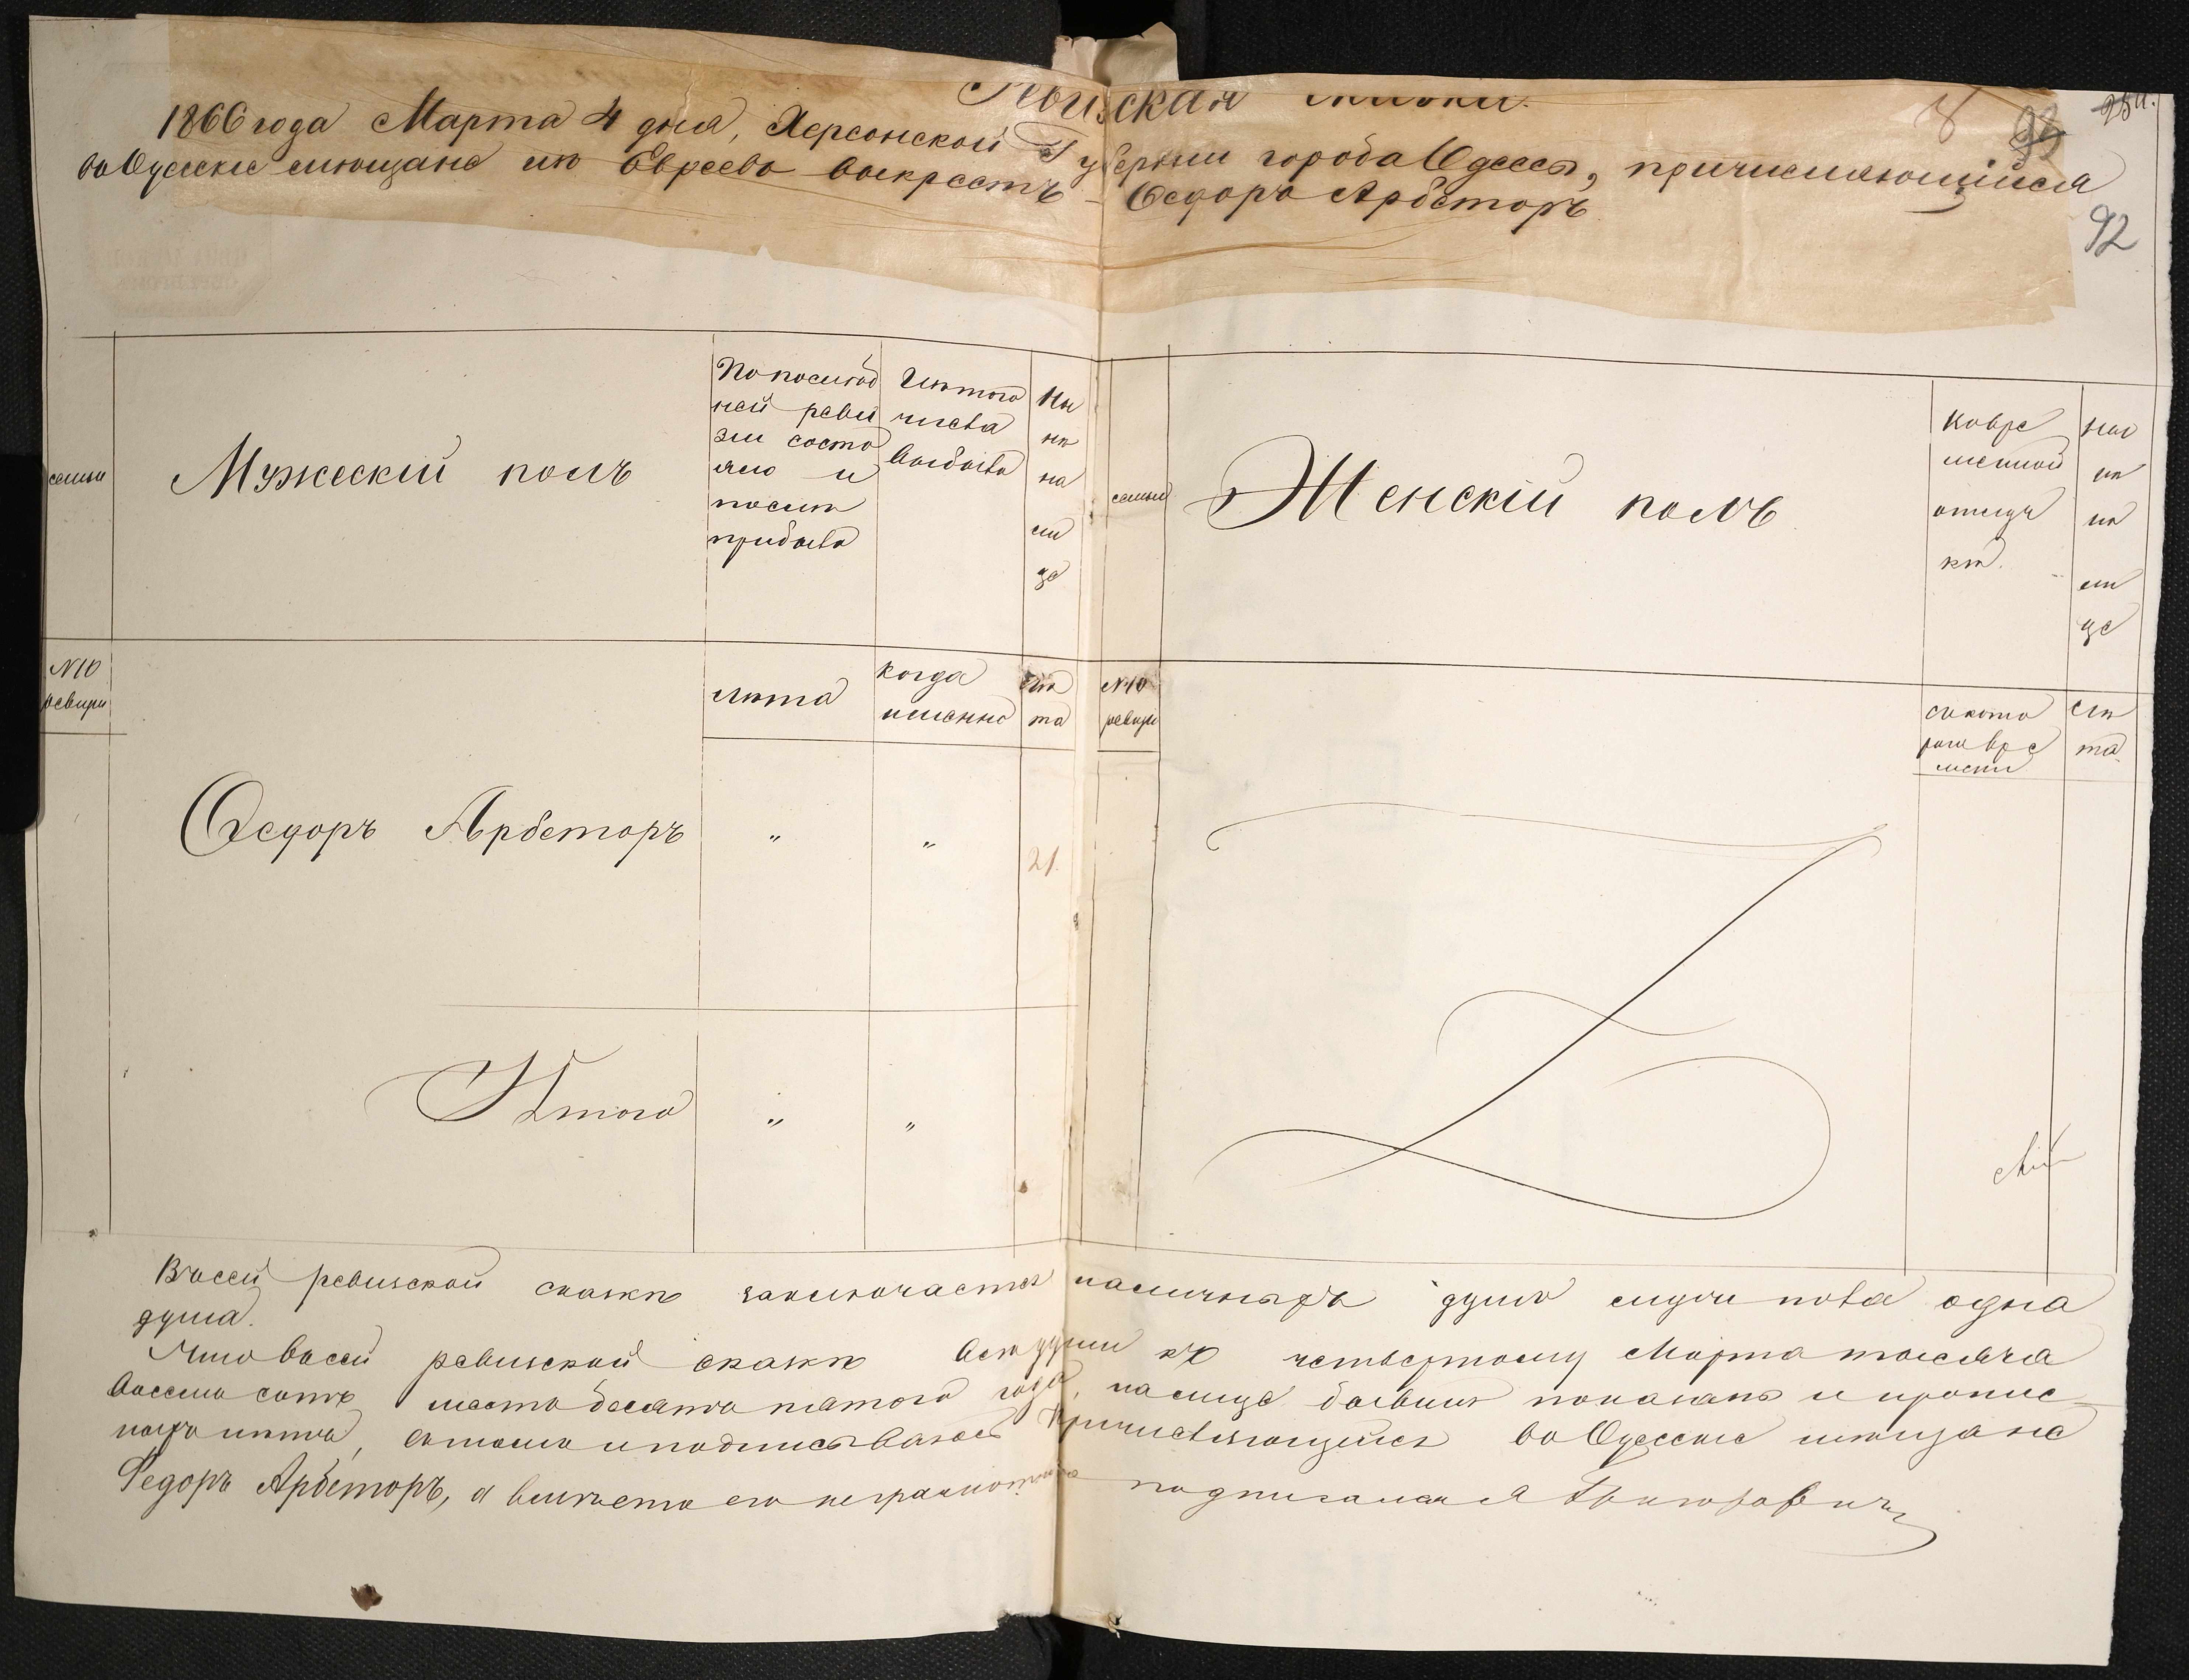 Ревизская сказка.
25 а.
1866 года Марта 4 дня, Херсонской Губернии города Одессы, причисляющійся
въ Одесскіе мѣщане изъ Евреевъ выкрестъ Ѳедоръ Арбеторъ
92
семьи
Мужескій полъ
По послѣд
ней реви
зіи состо
яло и
послѣ
прибыло
Изъ того
числа
выбыло
Ны
нѣ
на
ли
цо
семьи
Женскій полъ
Во вре
менной
отлуч
кѣ.
Ны
нѣ
на
ли
це
N 10
ревизіи
лѣта
когда
именно
лѣ
та
N 10
ревизіи
съ кото
раго вре
мени
лѣ
та
Ѳедоръ Арбеторъ
"
"
21.
Итого
"
"
Въ сей ревизской сказкѣ заключается наличныхъ душъ муж. пола одна
душа.
Что въ сей ревизской сказкѣ всѣ души къ четвертому Марта тысяча
восемь сотъ шестьдесятъ шестого года, на лице бывшія показаны и пропис
ныхъ нѣтъ, въ томъ и подписываюсь причисляющійся въ Одесскіе мѣщане
Федоръ Арбеторъ, а вмѣсто его неграмотнаго подписался А